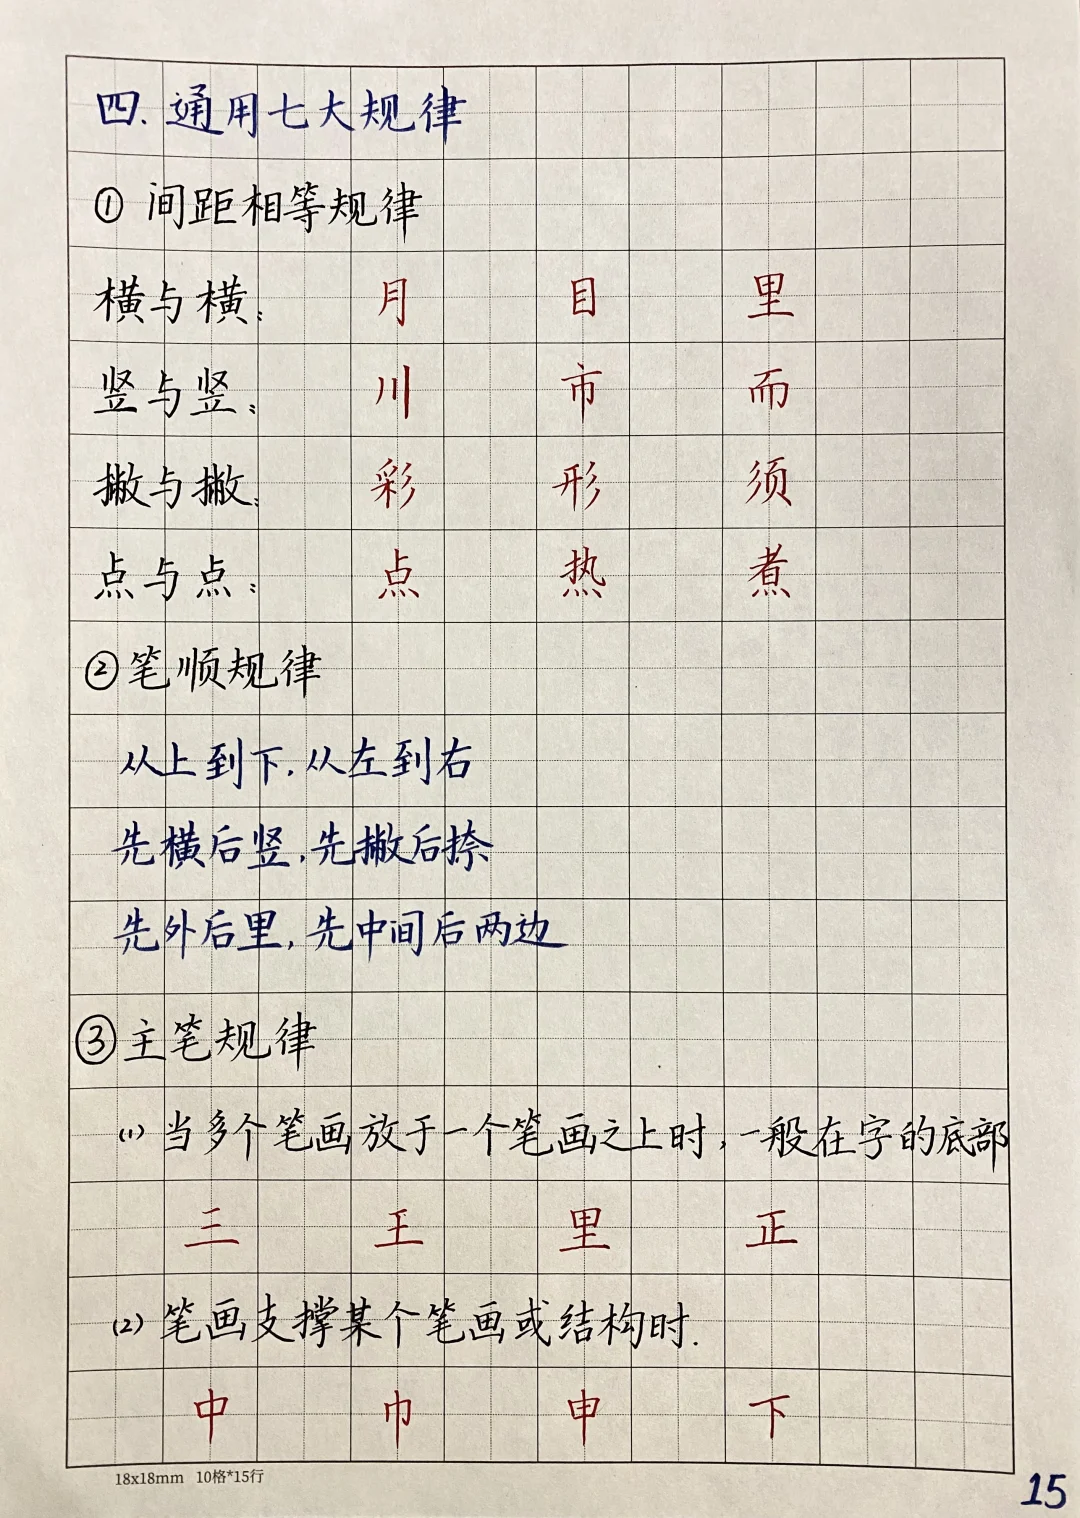 四.通用七大规律
① 间距相等规律
横与横: 月 目 里
竖与竖: 川 市 而
撇与撇: 彩 形 须
点与点: 点 热 煮
②笔顺规律
从上到下,从左到右
先横后竖,先撇后捺
先外后里,先中间后两边
③主笔规律
(1) 当多个笔画放于一个笔画之上时,一般在字的底部
三 王 里 正
(2) 笔画支撑某个笔画或结构时.
中 巾 申 下
18x18mm 10格*15行
15